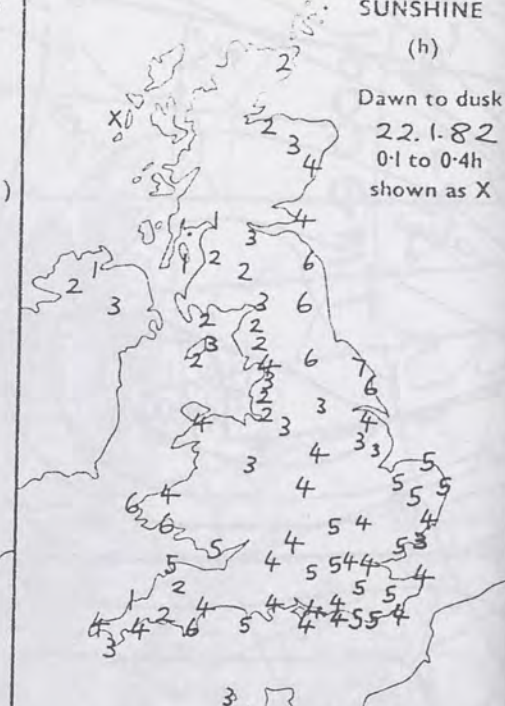 SUNSHINE
(h)
Dawn to dusk
22.1.82
0·1 to 0·4h
shown as X
)
2
X
2
3
4
4
1
3
1
2
6
1
2
2
3
6
3
2
2
3
2
2
6
7
4
3
6
2
3
4
2
4
3
3
3
4
3
5
4
5
5
5
6
4
6
5
4
4
3
5
4
5
5
4
5
4
4
4
5
2
5
5
1
2
4
4
4
4
4
4
6
5
4
4
5
5
3
3